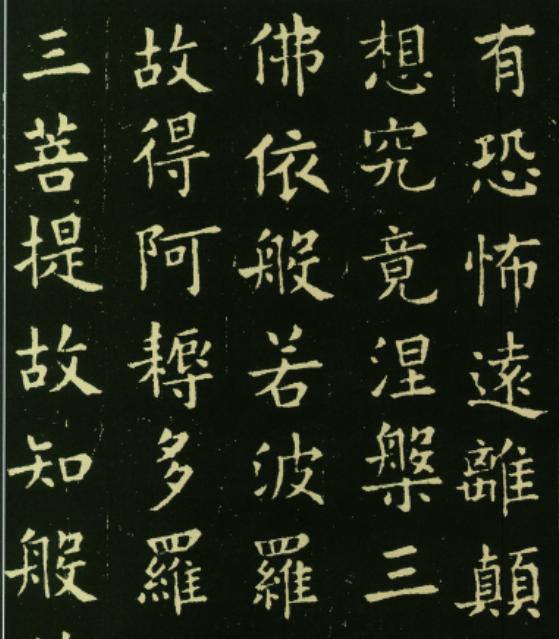 有恐怖遠離顛
想究竟涅槃三
佛依般若波羅
故得阿耨多羅
三菩提故知般